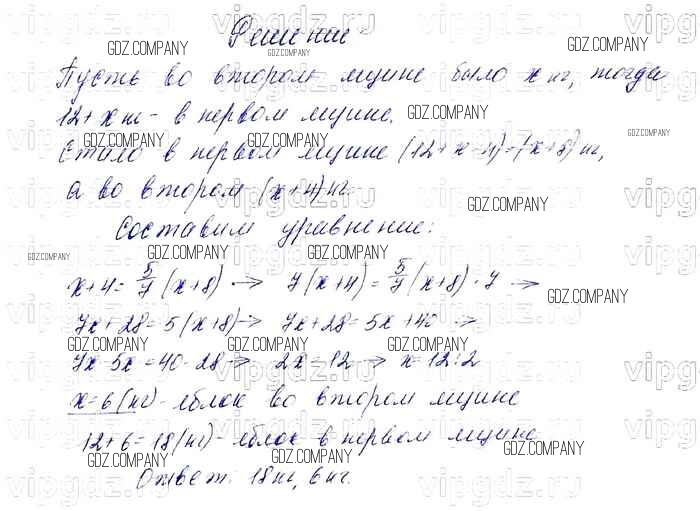 Решение
Пусть во втором ящике было x кг, тогда
12+x кг - в первом ящике.
Стало в первом ящике (12+x-4)=(x+8) кг,
а во втором (x+4) кг.
Составим уравнение:
x+4= 5/7 (x+8) → 7(x+4)= 5/7 (x+8)·7 →
7x+28=5(x+8) → 7x+28=5x+40 →
7x-5x=40-28 → 2x=12 → x=12:2
x=6(кг)- яблок во втором ящике
12+6=18(кг)- яблок в первом ящике
Ответ: 18кг, 6кг.